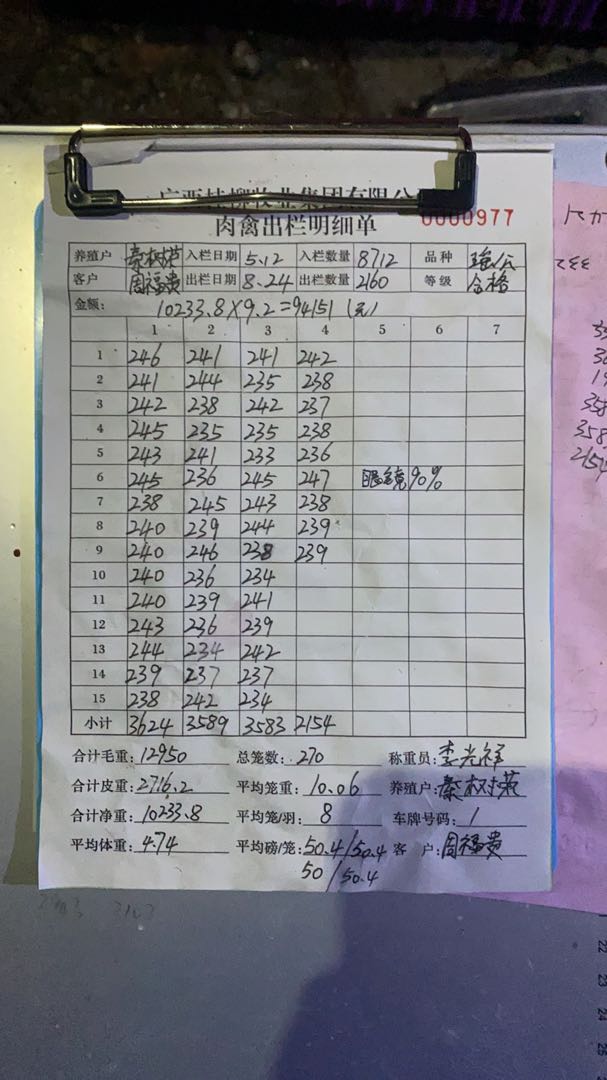 肉禽出栏明细单 0000977
养殖户 秦权荣 入栏日期 5.12 入栏数量 8712 品种
客户 周福贵 出栏日期 8.24 出栏数量 2160 等级 合格
金额: 10233.8×9.2=94151(元)
1 2 3 4 5 6 7
1 246 241 241 242
2 241 244 235 238
3 242 238 242 237
4 245 235 235 238
5 243 241 233 236
6 245 236 245 247 眼镜90%
7 238 245 243 238
8 240 239 244 239
9 240 246 238 239
10 240 236 234
11 240 239 241
12 243 236 239
13 244 234 242
14 239 237 237
15 238 242 234
小计 3624 3589 3583 2154
合计毛重:12950 总笼数:270 称重员:李光祥
合计皮重:2716.2 平均笼重:10.06 养殖户:秦权荣
合计净重:10233.8 平均笼/羽:8 车牌号码:1
平均体重:4.74 平均磅/笼:50.4/50.4 客户:周福贵
50/50.4
358
2154
22
23
24
25